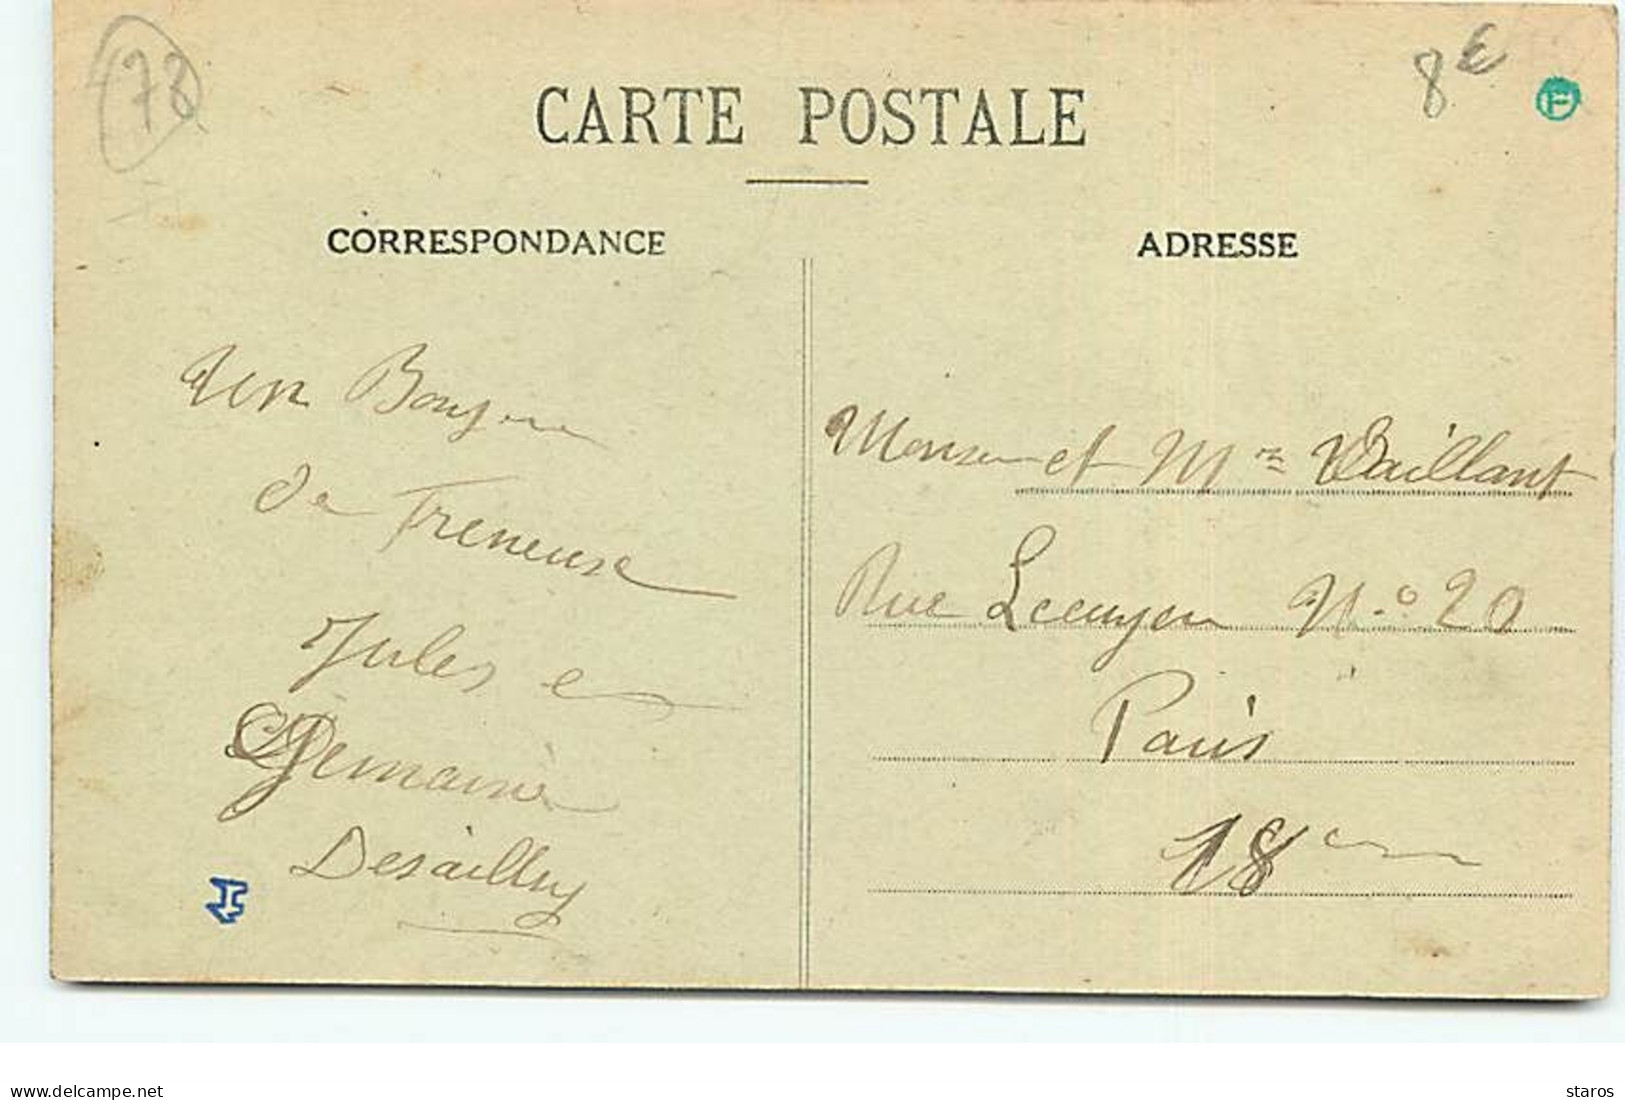 78
8€
CARTE POSTALE
CORRESPONDANCE
ADRESSE
un Bonjour
de Freneuse
Jules et
Germaine
Desailly
Monsieur et Mme Vaillant
Rue Lecuyer N° 20
Paris
18em
delcampe.net
staros